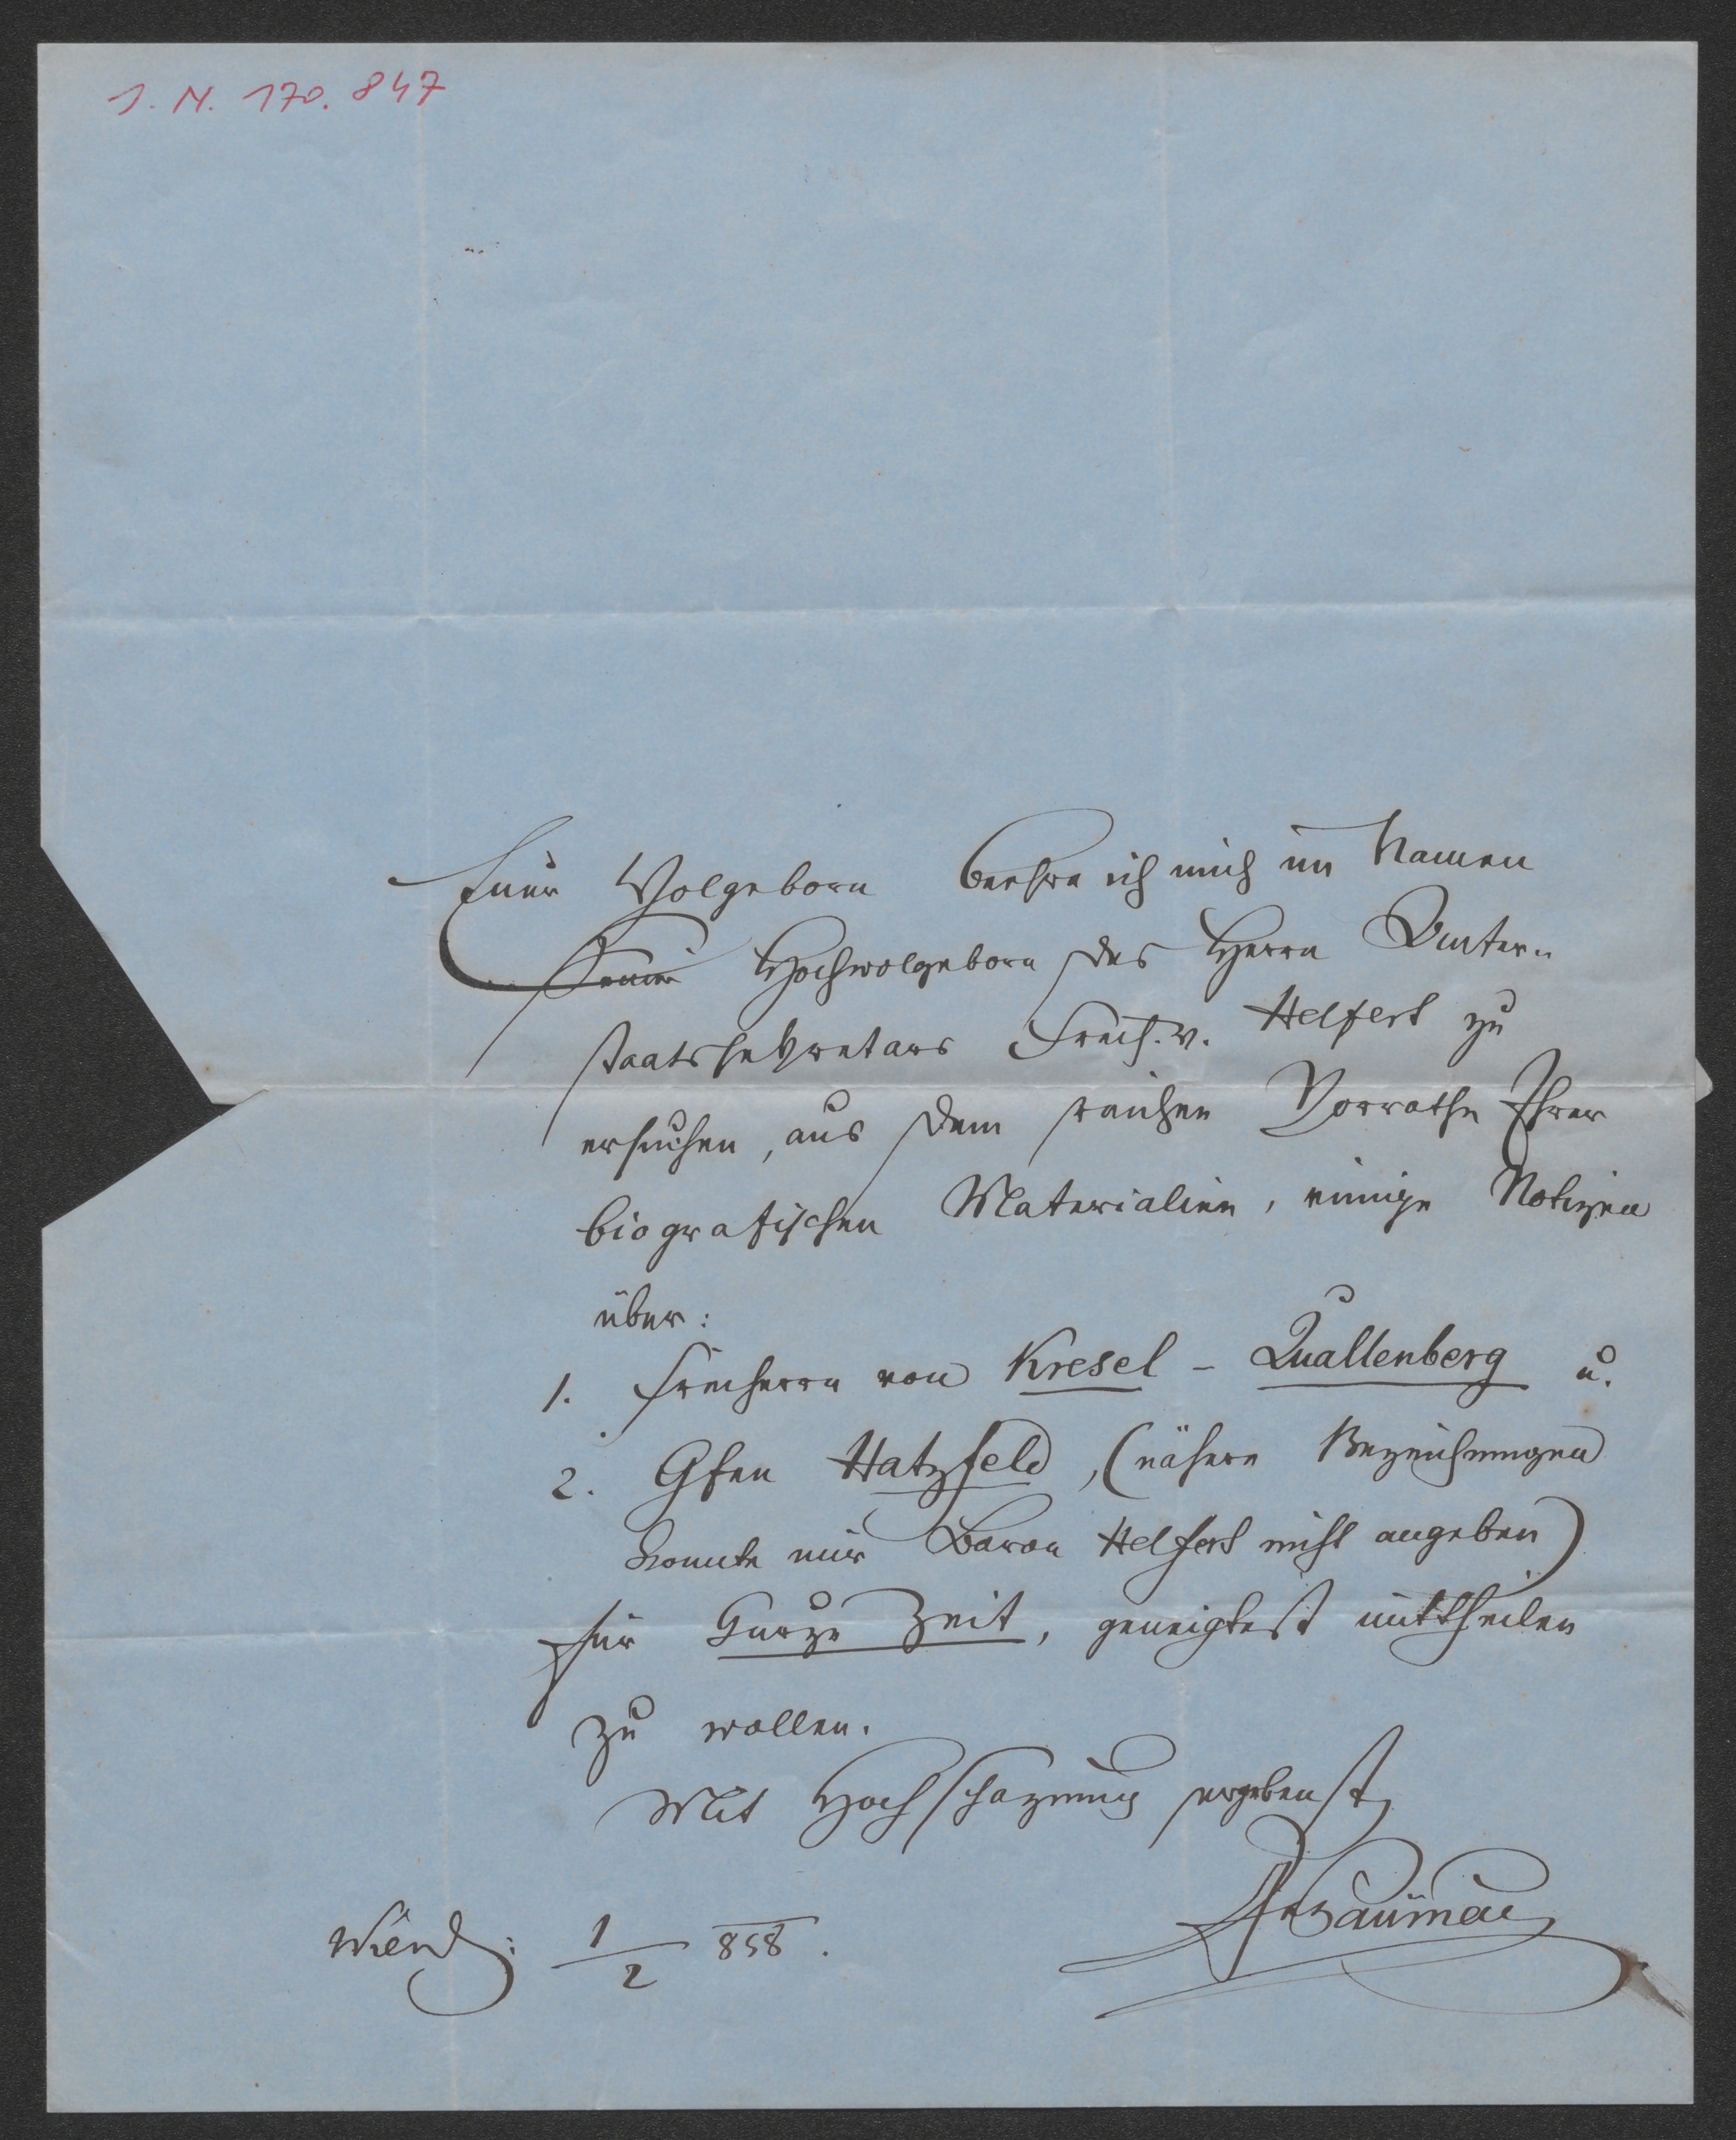 J. N. 170.847
Euer Wolgeborn beehre ich mich im Namen
Seiner Hochwolgeborn des Herrn Unter-
staatssekretärs Freih. v. Helfert zu
ersuchen, aus dem reichen Vorrathe Ihrer
biografischen Materialien, einige Notizen
über:
1. Freiherrn von Kresel - Quallenberg u.
2. Gfen Hatzfeld, (nähere Bezeichnungen
konnte mir Baron Helfert nicht angeben)
für kurze Zeit, geneigtest mittheilen
zu wollen.
Mit Hochschäzung ergebenst
Wien d: 1/2 858.